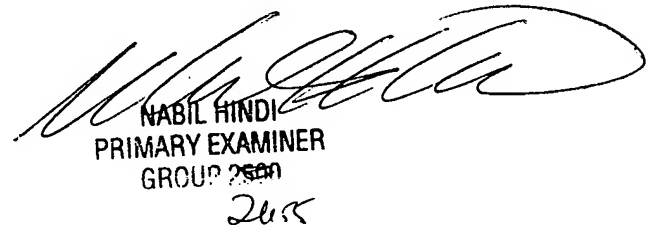 NABIL HINDI
PRIMARY EXAMINER
GROUP 2500
2655